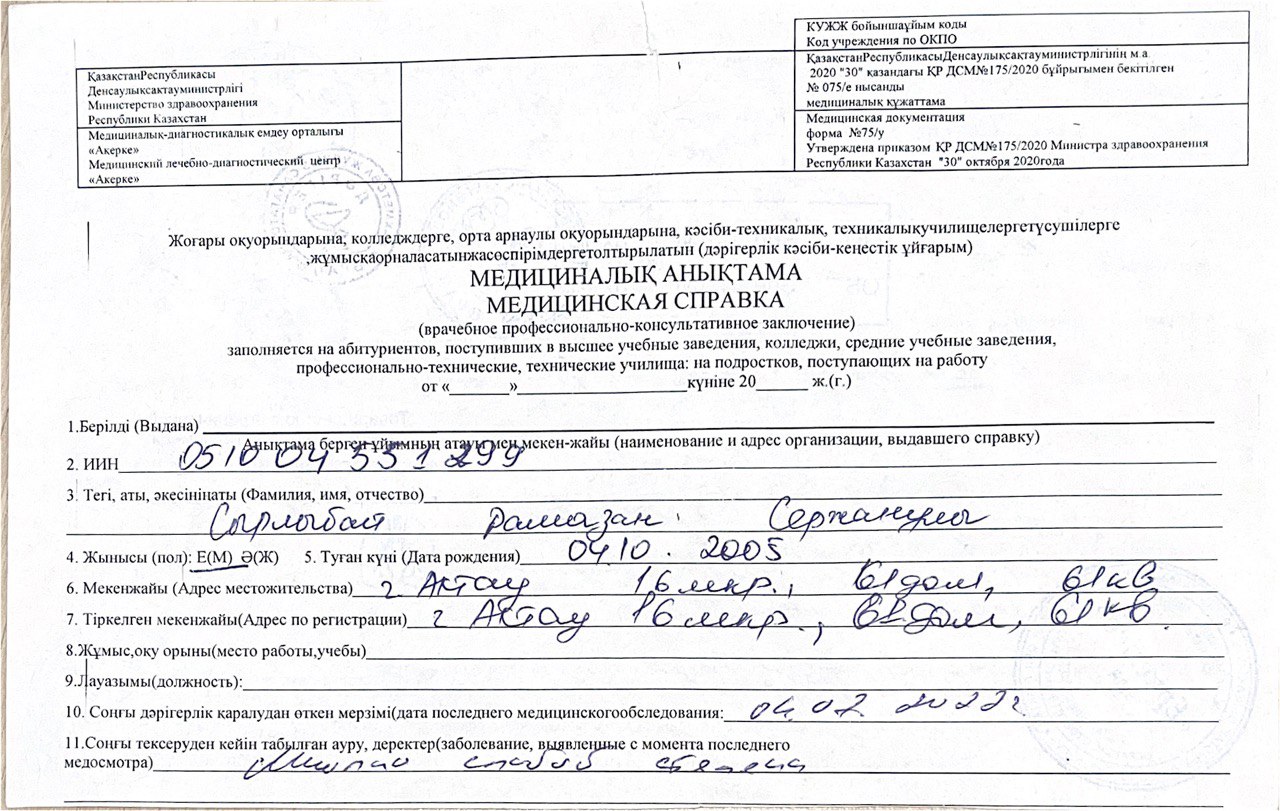 КУЖЖ бойыншаұйым коды
Код учреждения по ОКПО
ҚазақстанРеспубликасы
Денсаулықсақтауминистрлігі
Министерство здравоохранения
Республики Казахстан
ҚазақстанРеспубликасыДенсаулықсақтауминистрлігінің м.а.
2020 "30" қазандағы ҚР ДСМ№175/2020 бұйрығымен бекітілген
№ 075/е нысанды
медициналық құжаттама
Медициналық-диагностикалық емдеу орталығы
«Акерке»
Медицинский лечебно-диагностический центр
«Акерке»
Медицинская документация
форма №75/у
Утверждена приказом ҚР ДСМ№175/2020 Министра здравоохранения
Республики Казахстан "30" октября 2020года
Жоғары оқуорындарына, колледждерге, орта арнаулы оқуорындарына, кәсіби-техникалық, техникалықучилищелергетүсушілерге
,жұмысқаорналасатынжасөспірімдергетолтырылатын (дәрігерлік кәсіби-кеңестік ұйғарым)
МЕДИЦИНАЛЫҚ АНЫҚТАМА
МЕДИЦИНСКАЯ СПРАВКА
(врачебное профессионально-консультативное заключение)
заполняется на абитуриентов, поступивших в высшее учебные заведения, колледжи, средние учебные заведения,
профессионально-технические, технические училища: на подростков, поступающих на работу
от «______»____________________күніне 20______ ж.(г.)
1.Берілді (Выдана)
Анықтама берген ұйымның атауы мен мекен-жайы (наименование и адрес организации, выдавшего справку)
2. ИИН 051004551299
3. Тегі, аты, әкесініңаты (Фамилия, имя, отчество)
Сырлыбай Рамазан Сержанұлы
4. Жынысы (пол): Е(М) Ә(Ж) 5. Туған күні (Дата рождения) 04.10.2005
6. Мекенжайы (Адрес местожительства) г Актау 16 мкр., 61 дом, 61 кв
7. Тіркелген мекенжайы(Адрес по регистрации) г Актау 16 мкр., 61 дом, 61 кв
8.Жұмыс,оқу орыны(место работы,учебы)
9.Лауазымы(должность):
10. Соңғы дәрігерлік қаралудан өткен мерзімі(дата последнего медицинскогообследования: 04.07 2022г
11.Соңғы тексеруден кейін табылған ауру, деректер(заболевание, выявленные с момента последнего
медосмотра) слабой степени